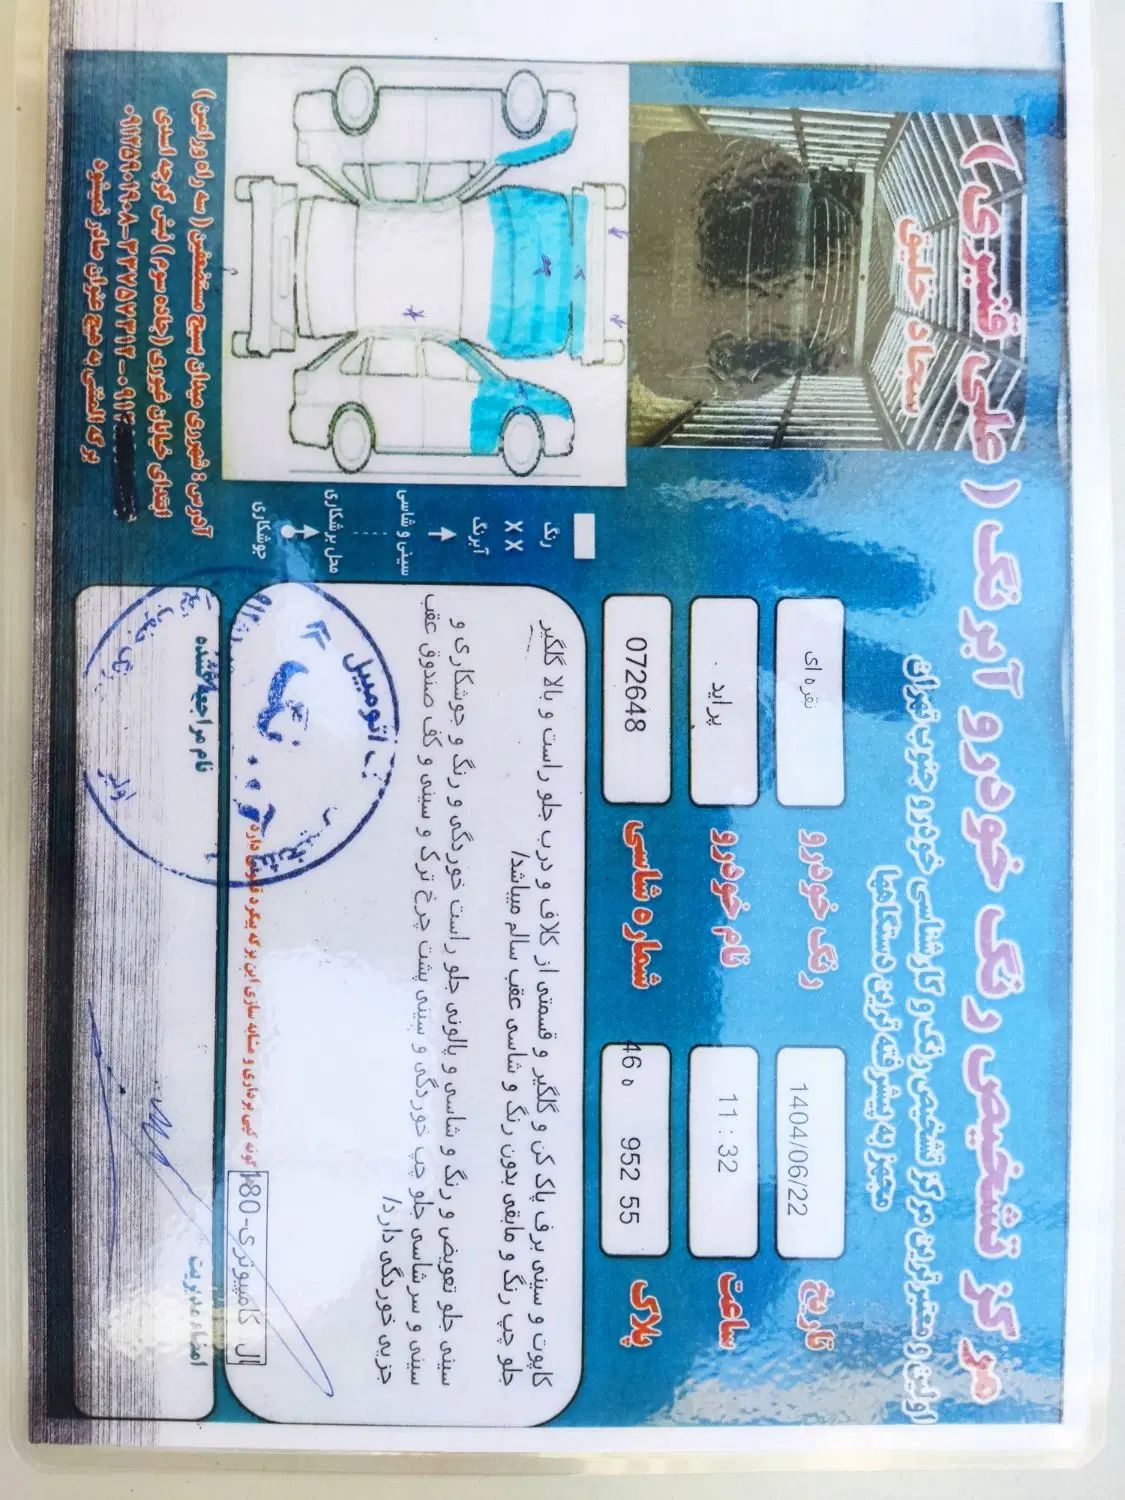 مرکز تشخیص رنگ خودرو آبرنگ ( علی قنبری )
سجاد خلیق
اولین و معتبرترین مرکز تشخیص رنگ و کارشناسی خودرو جنوب تهران
مجهز به پیشرفته ترین دستگاهها
تاریخ 1404/06/22 رنگ خودرو نقره ای
ساعت 11 : 32 نام خودرو پراید
پلاک 55 952 ه 46 شماره شاسی 072648
رنگ
X X آبرنگ
سینی و شاسی
محل برشکاری
جوشکاری
کاپوت و سینی برف پاک کن و گلگیر و قسمتی از کلاف و درب جلو راست و بالا گلگیر
جلو چپ رنگ و مابقی بدون رنگ و شاسی عقب سالم میباشد/
سینی جلو تعویض و رنگ و شاسی و پالونی جلو راست خوردگی و رنگ و جوشکاری و
سینی و سرشاسی جلو چپ خوردگی و سینی پشت چرخ ترک و سینی و کف صندوق عقب
جزیی خوردگی دارد/
اتومبیل
ال کامپیوتری-180
گونه کپی برداری و مشابه سازی این برگه پیگرد قانونی دارد
امضاء مدیریت
نام مراجعه کننده
آدرس : شهرری میدان بسیج مستضعفین ( سه راه ورامین )
ابتدای خیابان غیوری ( جاده سوم ) نبش کوچه اسدی
برگه المثنی به هیچ عنوان صادر نمیشود